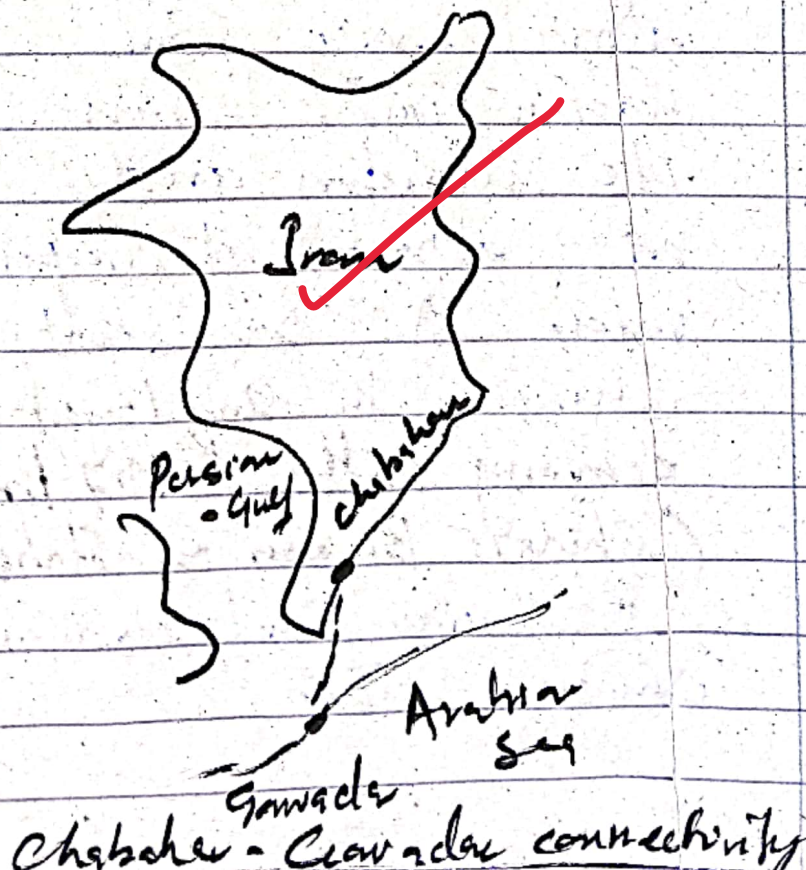 Iran
Persian
Gulf
Chabahar
Arabian
Sea
Gawadar
Chabahar - Gawadar connectivity